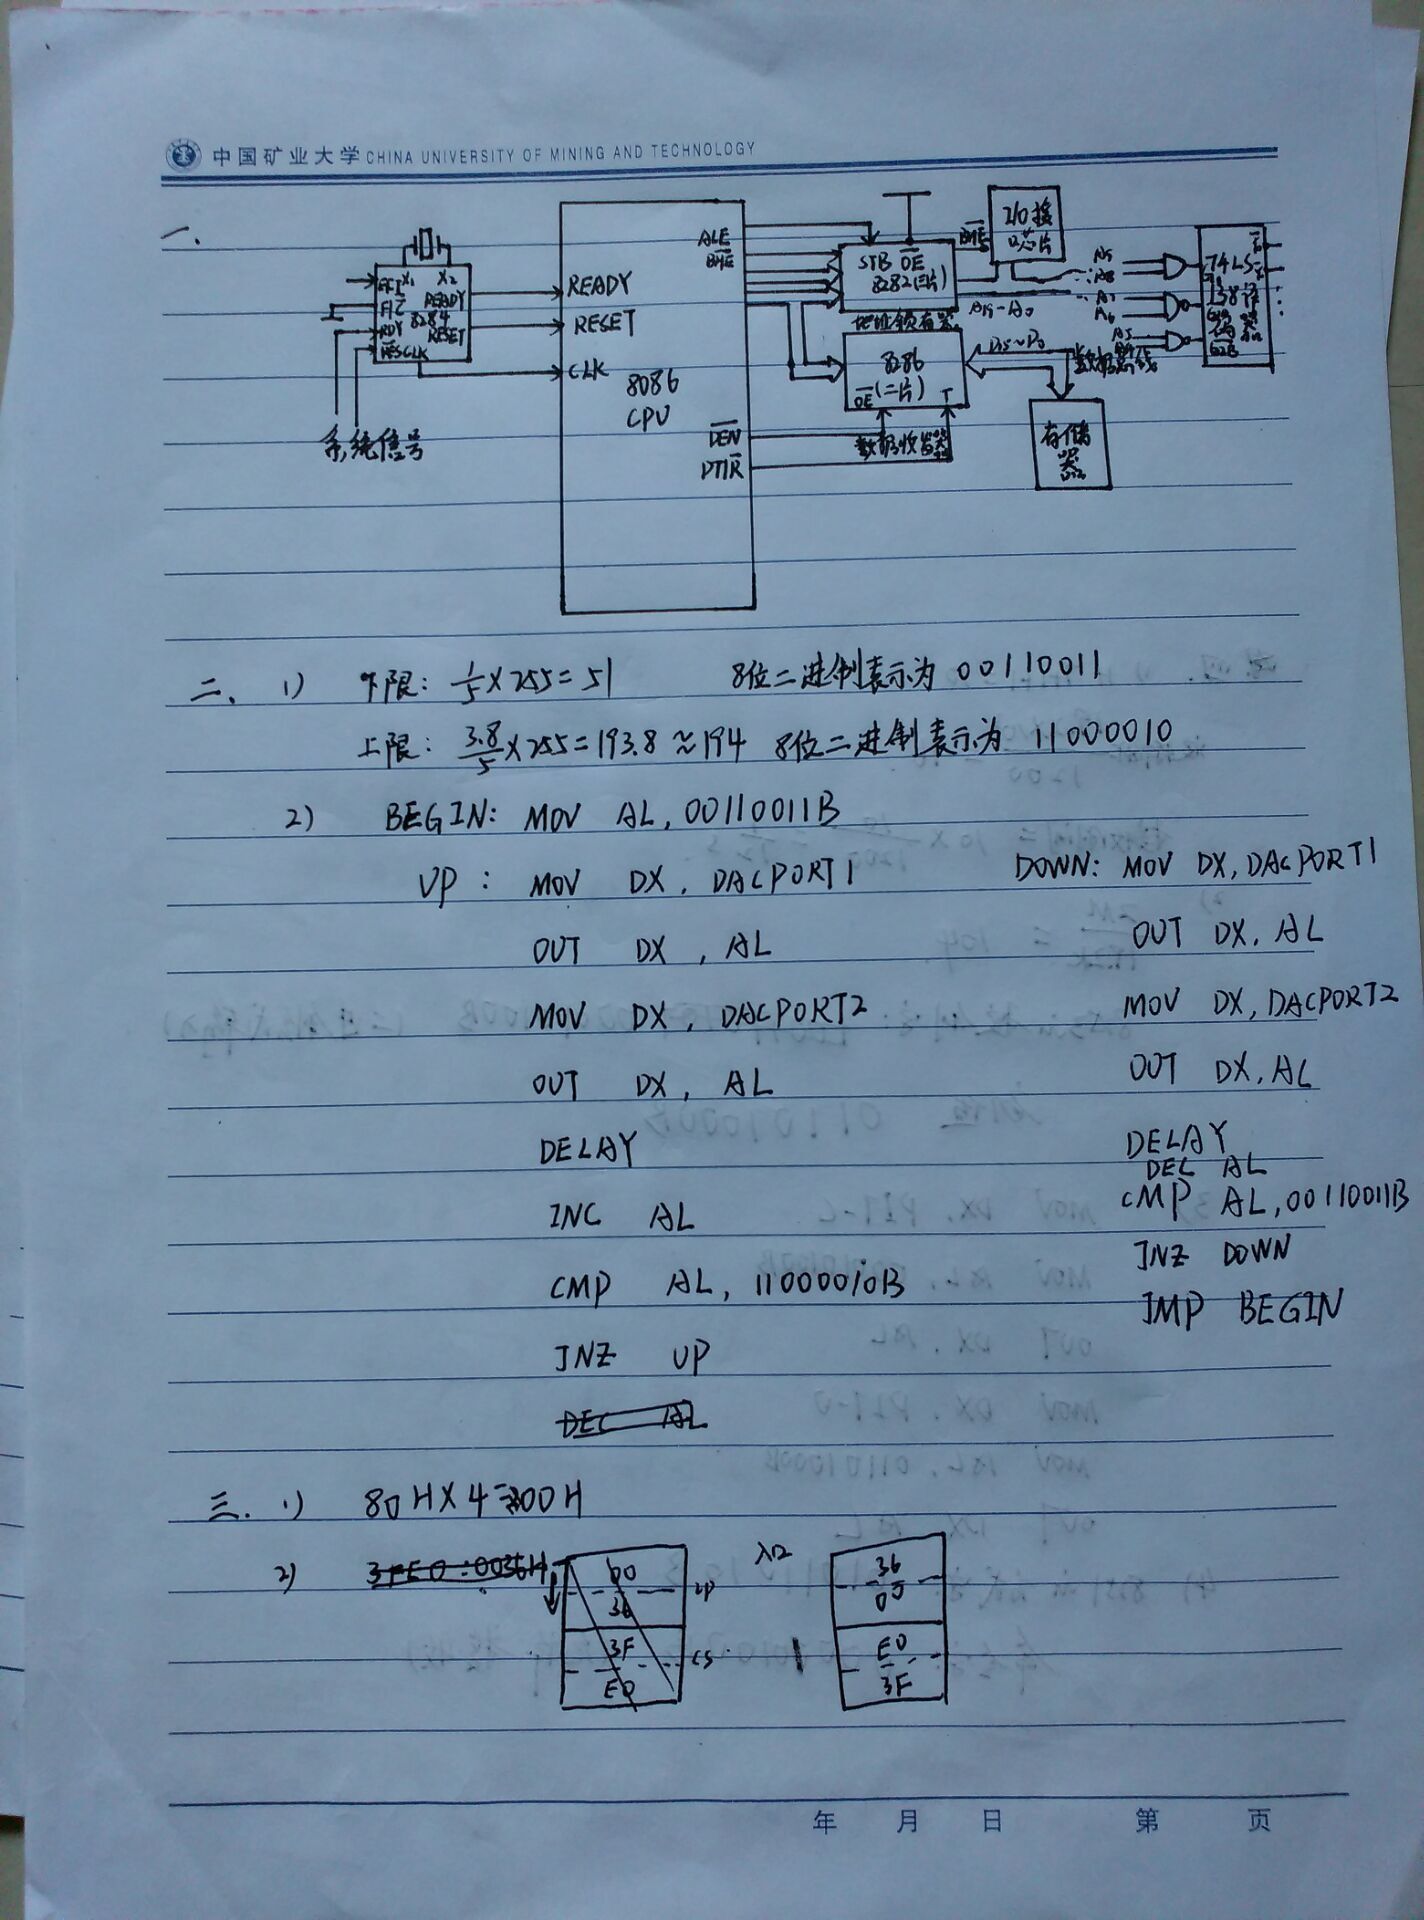 中国矿业大学 CHINA UNIVERSITY OF MINING AND TECHNOLOGY
一、
X1 X2
READY
8284
RESET
RDY
CLK
系统信号
READY
RESET
CLK
8086
CPU
ALE
BHE
DEN
DT/R
STB OE
8282(三片)
地址锁存器
8286
OE (二片) T
数据收发器
BHE
I/O接
口芯片
A19-A0
D15~D0
存储
器
A9
A8
A7
A6
A5
74LS
138译
码器
G2B
二、1) 下限: 1/5×255=51 8位二进制表示为 00110011
上限: 3.8/5×255=193.8≈194 8位二进制表示为 11000010
2) BEGIN: MOV AL, 00110011B
UP: MOV DX, DACPORT1
OUT DX, AL
MOV DX, DACPORT2
OUT DX, AL
DELAY
INC AL
CMP AL, 11000010B
JNZ UP
DEC AL
DOWN: MOV DX, DACPORT1
OUT DX, AL
MOV DX, DACPORT2
OUT DX, AL
DELAY
DEC AL
CMP AL, 00110011B
JNZ DOWN
JMP BEGIN
三、1) 80H×4=200H
2) 3FE0:0036H
00
36
IP
3F
E0
CS
入口
36
00
E0
3F
年 月 日 第 页